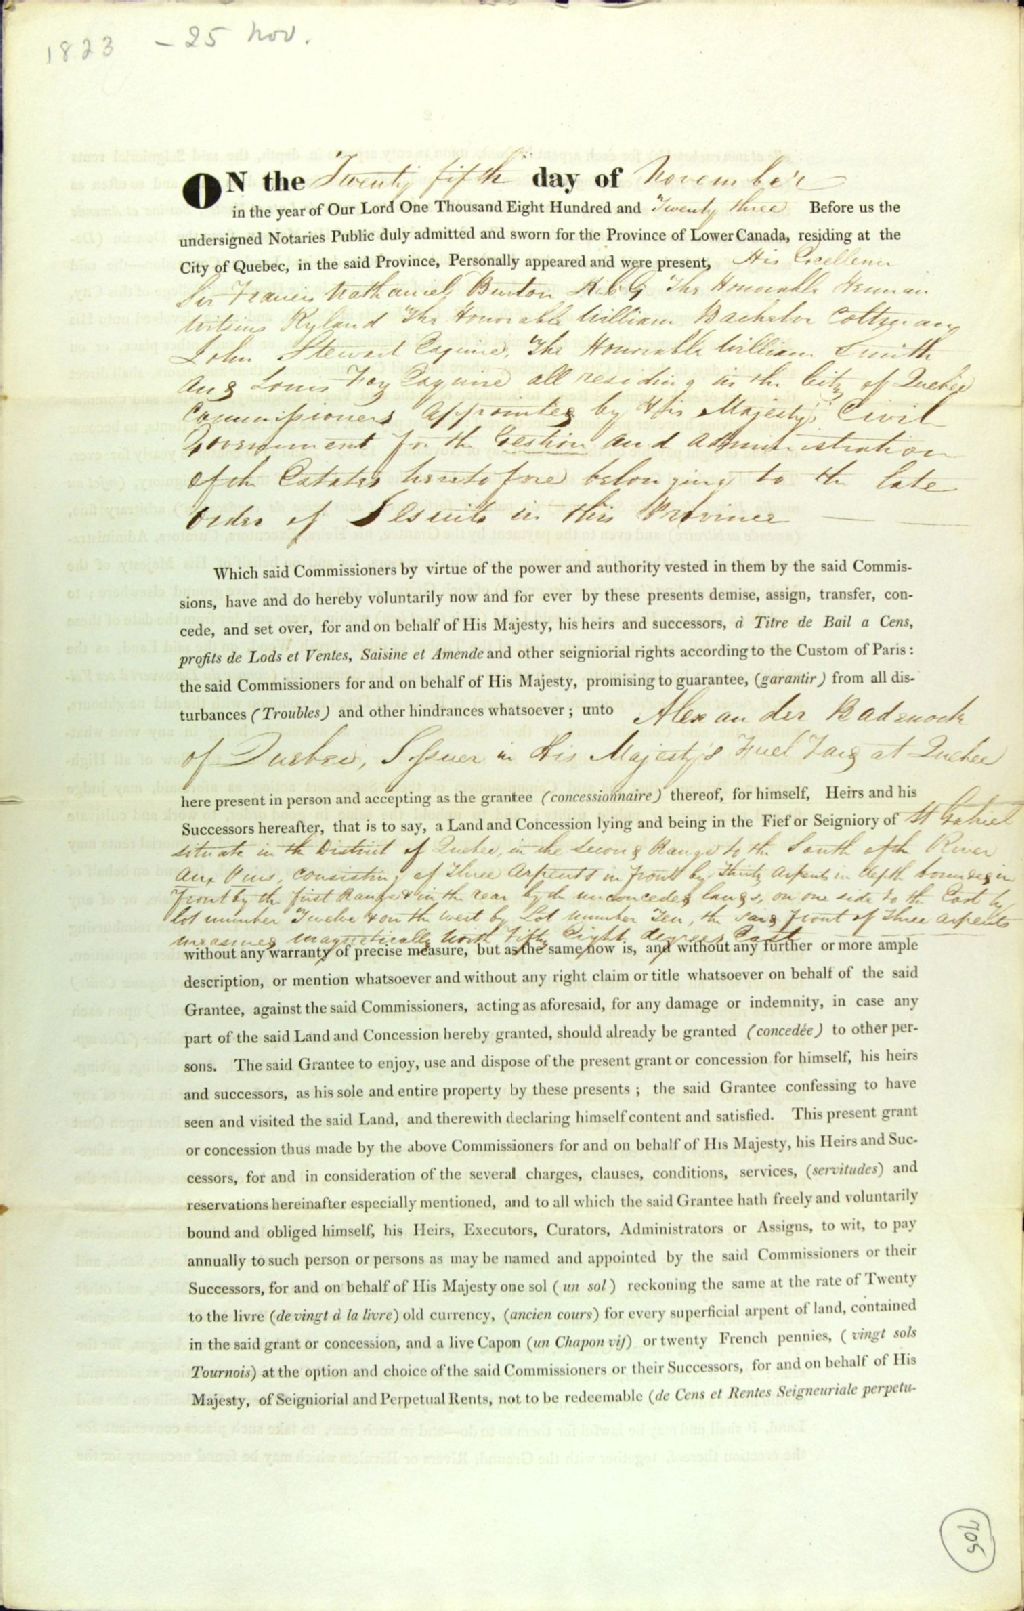 1823 - 25 Nov.
ON the Twenty fifth day of November
in the year of Our Lord One Thousand Eight Hundred and Twenty three Before us the
undersigned Notaries Public duly admitted and sworn for the Province of Lower Canada, residing at the
City of Quebec, in the said Province, Personally appeared and were present, His Excellency
Sir Francis Nathaniel Burton K.C.G The Honorable Herman
Witsius Ryland The Honorable William Bachelor Coltman
John Stewart Esquire, The Honorable William Smith
and Louis Foy Esquire all residing in the City of Quebec
Commissioners appointed by His Majesty's Civil
Government for the Gestion and administration
of the Estates heretofore belonging to the late
Order of Jesuits in this Province
Which said Commissioners by virtue of the power and authority vested in them by the said Commis-
sions, have and do hereby voluntarily now and for ever by these presents demise, assign, transfer, con-
cede, and set over, for and on behalf of His Majesty, his heirs and successors, à Titre de Bail a Cens,
profits de Lods et Ventes, Saisine et Amende and other seigniorial rights according to the Custom of Paris:
the said Commissioners for and on behalf of His Majesty, promising to guarantee, (garantir) from all dis-
turbances (Troubles) and other hindrances whatsoever; unto Alexander Badenoch
of Quebec, Issuer in His Majesty's Fuel Yard at Quebec
here present in person and accepting as the grantee (concessionnaire) thereof, for himself, Heirs and his
Successors hereafter, that is to say, a Land and Concession lying and being in the Fief or Seigniory of St Gabriel
situate in the District of Quebec, in the second Range to the South of the River
aux Pins, consisting of Three Arpents in front by Thirty Arpents in depth bounded in
front by the first Range & in the rear by the unconceded lands, on one side to the East by
lot number Twelve & on the west by Lot number Ten, the said front of three arpents
measured magnetically North fifty Eight degrees East
without any warranty of precise measure, but as the same now is, and without any further or more ample
description, or mention whatsoever and without any right claim or title whatsoever on behalf of the said
Grantee, against the said Commissioners, acting as aforesaid, for any damage or indemnity, in case any
part of the said Land and Concession hereby granted, should already be granted (concedée) to other per-
sons. The said Grantee to enjoy, use and dispose of the present grant or concession for himself, his heirs
and successors, as his sole and entire property by these presents; the said Grantee confessing to have
seen and visited the said Land, and therewith declaring himself content and satisfied. This present grant
or concession thus made by the above Commissioners for and on behalf of His Majesty, his Heirs and Suc-
cessors, for and in consideration of the several charges, clauses, conditions, services, (servitudes) and
reservations hereinafter especially mentioned, and to all which the said Grantee hath freely and voluntarily
bound and obliged himself, his Heirs, Executors, Curators, Administrators or Assigns, to wit, to pay
annually to such person or persons as may be named and appointed by the said Commissioners or their
Successors, for and on behalf of His Majesty one sol (un sol) reckoning the same at the rate of Twenty
to the livre (de vingt à la livre) old currency, (ancien cours) for every superficial arpent of land, contained
in the said grant or concession, and a live Capon (un Chapon vif) or twenty French pennies, (vingt sols
Tournois) at the option and choice of the said Commissioners or their Successors, for and on behalf of His
Majesty, of Seigniorial and Perpetual Rents, not to be redeemable (de Cens et Rentes Seigneuriale perpetu-
705